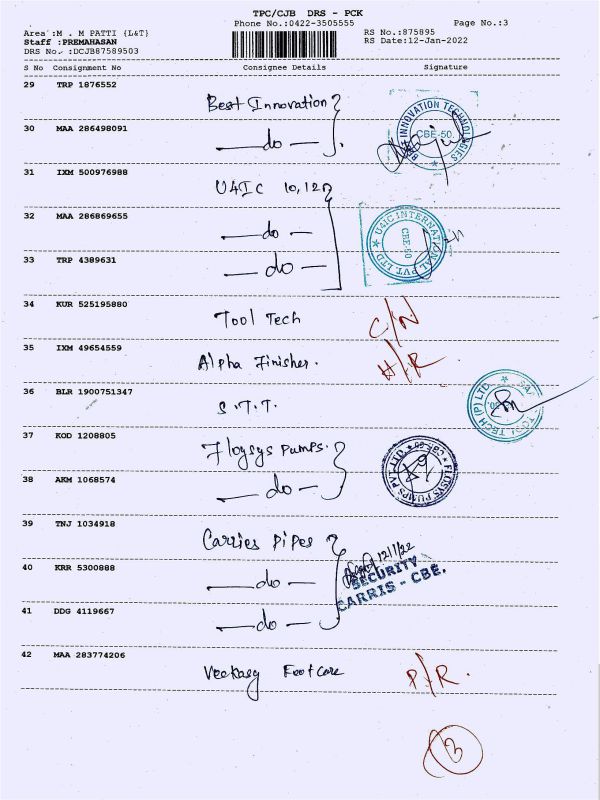 TPC/CJB DRS - PCK
Phone No.:0422-3505555 Page No.:3
Area :M . M PATTI {L&T} RS No.:875895
Staff :PREMAHASAN RS Date:12-Jan-2022
DRS No. :DCJB87589503
S No Consignment No Consignee Details Signature
29 TRP 1876552
Best Innovation
BEST INNOVATION TECHNOLOGIES
CBE-50.
30 MAA 286498091
do
31 IXM 500976988
U4IC 10,12
32 MAA 286869655
do
U4IC INTERNATIONAL PVT. LTD
CBE-50
33 TRP 4389631
do
34 KUR 525195880
Tool Tech C/N
35 IXM 49654559
Alpha Finisher. H/R.
36 BLR 1900751347
S.T.T.
TOOL TECH (P) LTD
37 KOD 1208805
Flosys Pumps.
FLOSYS PUMPS PVT. LTD
CBE-50
38 AKM 1068574
do
39 TNJ 1034918
Carries Pipes
12/1/22
40 KRR 5300888
do
SECURITY
CARRIS - CBE.
41 DDG 4119667
do
42 MAA 283774206
Veekasy Footcare P/R.
3